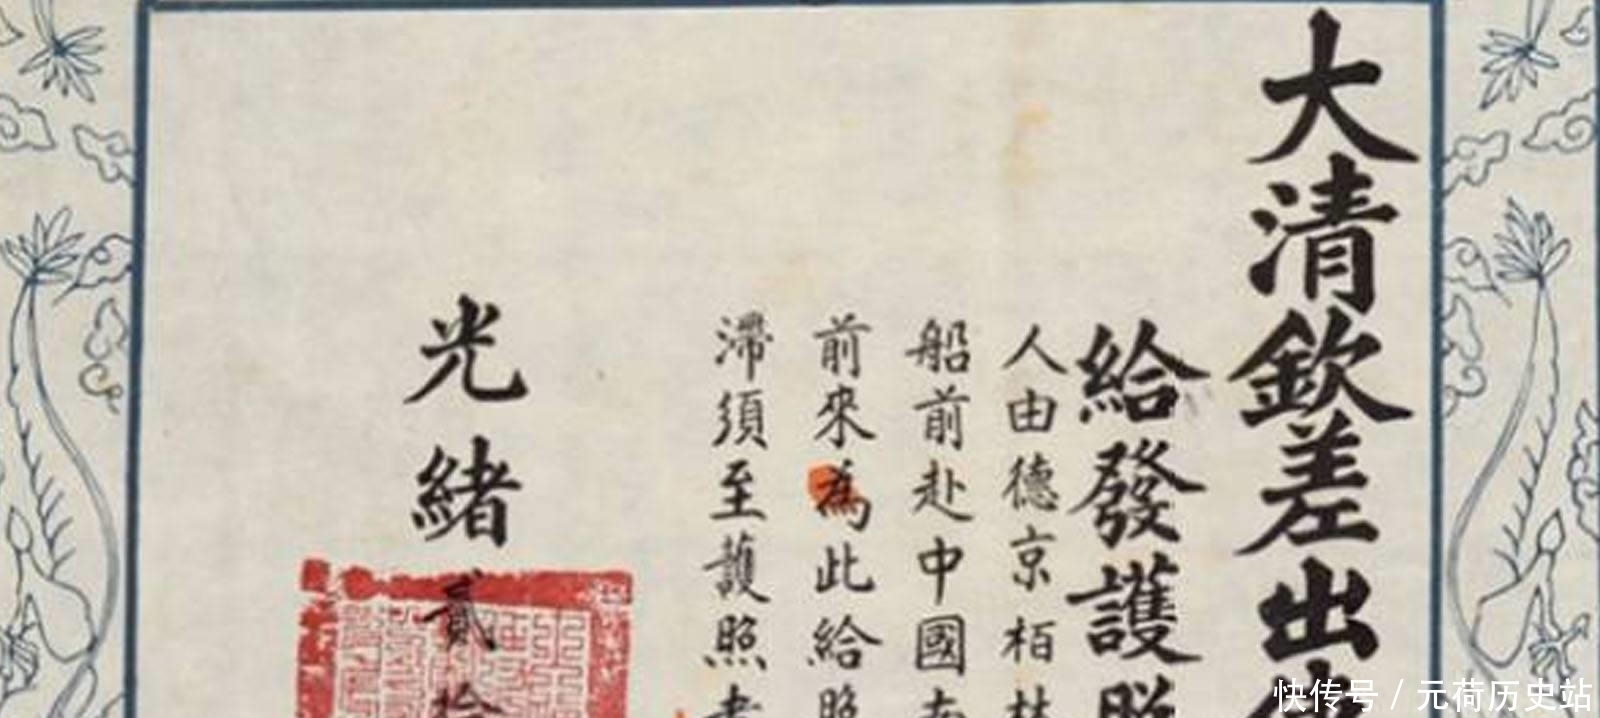 大清欽差出
給發護照
人由德京栢林
船前赴中國
前來為此給照
滯須至護照者
光緒貳拾
快传号 / 元荷历史站